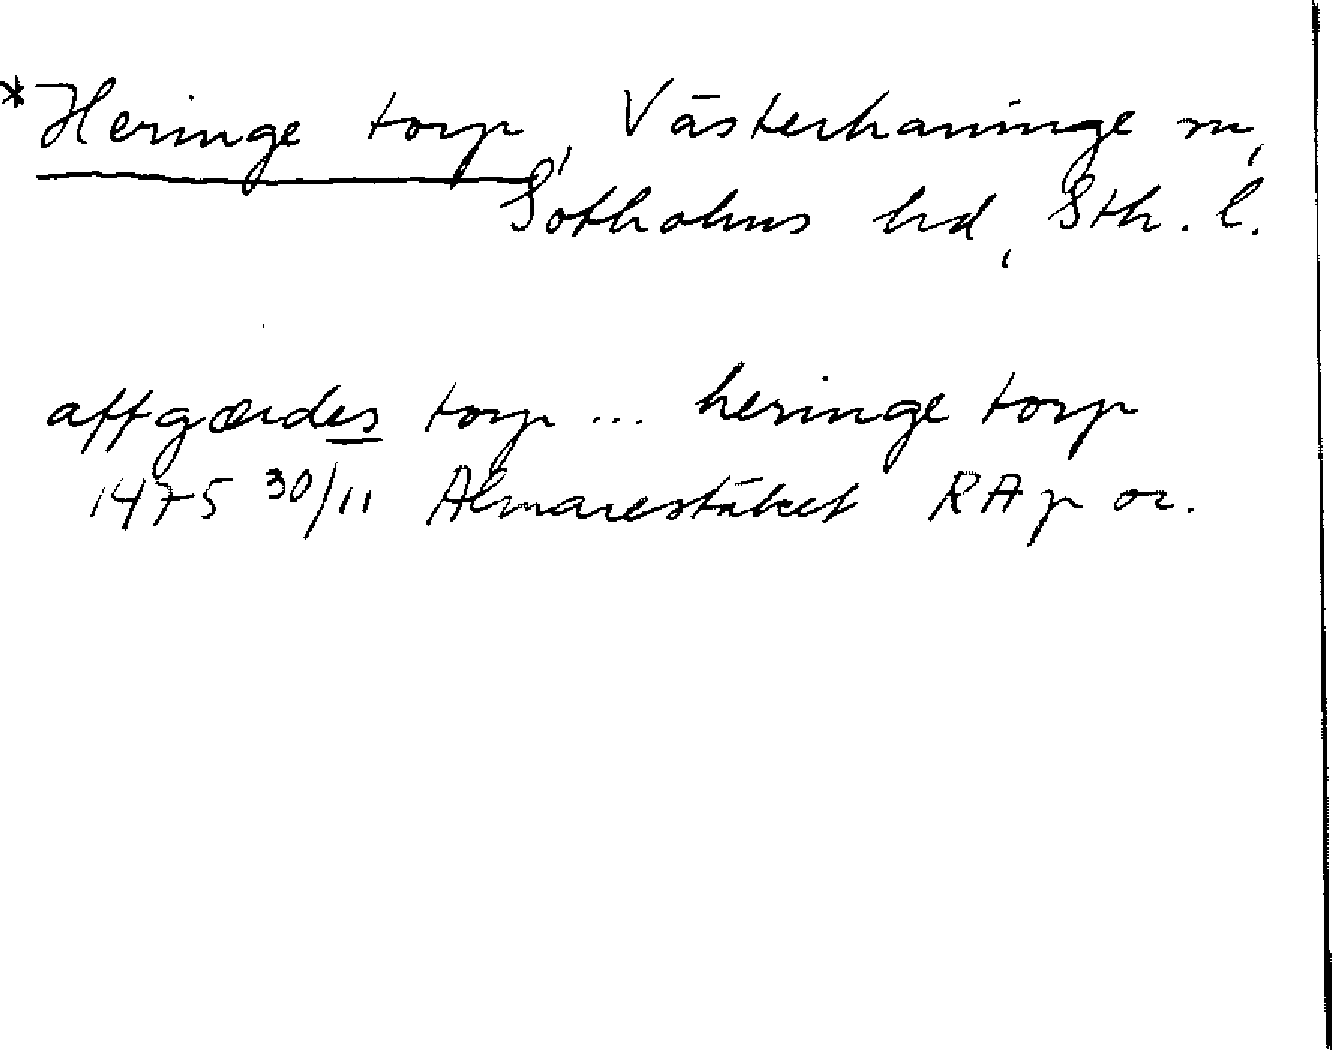 *Heringe torp, Västerhaninge sn,
Sotholms hd, Sth. l.
affgærdes torp ... heringe torp
1475 30/11 Almarestäket RAp or.